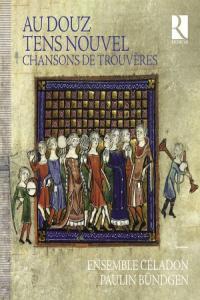 AU DOUZ
TENS NOUVEL
CHANSONS DE TROUVÈRES
ENSEMBLE CÉLADON
PAULIN BÜNDGEN